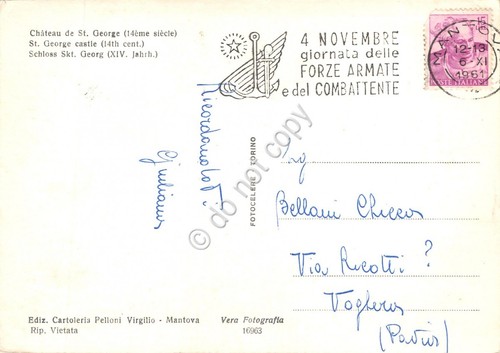 Château de St. George (14ème siècle)
St. George castle (14th cent.)
Schloss Skt. Georg (XIV. Jahrh.)
4 NOVEMBRE
giornata delle
FORZE ARMATE
e del COMBATTENTE
MANTOV
12-13
6 XI
1961
POSTE ITALIANE
Ricordandoti
Giuliana
FOTOCELERE TORINO
© do not copy
Sig
Bellani Checco
Via Ricotti ?
Voghera
(Pavia)
Ediz. Cartoleria Pelloni Virgilio - Mantova
Rip. Vietata
Vera Fotografia
16963